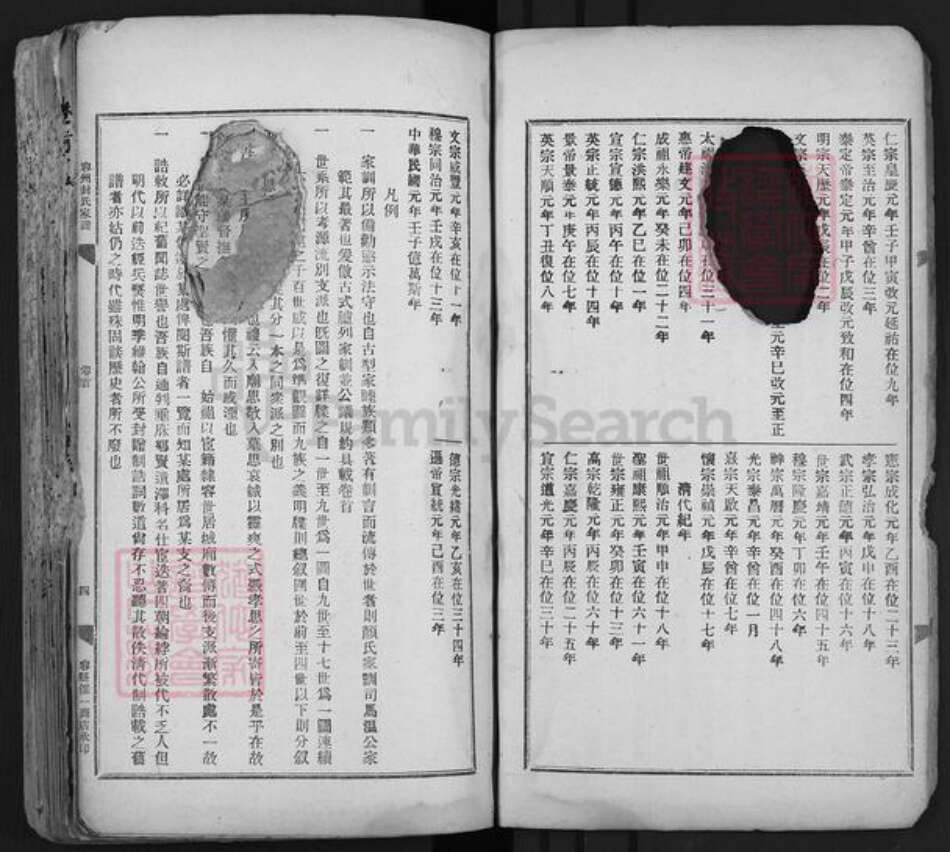 仁宗皇慶元年壬子甲寅改元延祐在位九年
英宗至治元年辛酉在位三年
泰定帝泰定元年甲子戊辰改元致和在位四年
明宗天歷元年戊辰在位二年
文宗
元辛巳改元至正
太
在位三十一年
惠帝建文元年己卯在位四年
成祖永樂元年癸未在位二十二年
仁宗洪熙元年乙巳在位一年
宣宗宣德元年丙午在位十年
英宗正統元年丙辰在位十四年
景帝景泰元年庚午在位七年
英宗天順元年丁丑復位八年
憲宗成化元年乙酉在位二十三年
孝宗弘治元年戊申在位十八年
武宗正德元年丙寅在位十六年
世宗嘉靖元年壬午在位四十五年
穆宗隆慶元年丁卯在位六年
神宗萬曆元年癸酉在位四十八年
光宗泰昌元年辛酉在位一月
熹宗天啟元年辛酉在位七年
懷宗崇禎元年戊辰在位十七年
清代紀年
世祖順治元年甲申在位十八年
聖祖康熙元年壬寅在位六十一年
世宗雍正元年癸卯在位十三年
高宗乾隆元年丙辰在位六十年
仁宗嘉慶元年丙辰在位二十五年
宣宗道光元年辛巳在位三十年
文宗咸豐元年辛亥在位十一年
穆宗同治元年壬戌在位十三年
德宗光緒元年乙亥在位三十四年
遜帝宣統元年己酉在位三年
中華民國元年壬子億萬斯年
凡例
一 家訓所以備勸懲示法守也自古型家睦族類多著有訓言而流傳於世者則顏氏家訓司馬溫公家
範其最著也爰倣古式臚列家訓並公議規約具載卷首
一 世系所以考源流別支派也既圖之復詳牒之自一世至九世爲一圖自九世至十七世爲一圖連續
之千百世咸以是爲準觀圖而九族之義明牒則總叙四世於前至四世以下則分叙
其分一本之同衆派之別也
也禮云入廟思敬入墓思哀誠以靈爽之式憑孝思之所寄皆於是乎在故
懼其久而或湮也
吾族自 始祖以宦籍隸容世居城廂數傳而後支派漸繁散處不一故
必詳
某處俾閱斯譜者一覽而知某處所居爲某支之裔也
一 誥敕所以紀舊聞誌世譽也吾族自通判
鄉賢遺澤科名仕宦迭著四朝綸綍所被代不乏人但
明代以前迭經兵燹惟明季
公所受封贈制誥詞數道尚存不忍聽其散佚清代制誥載之舊
譜者亦姑仍之時代雖殊固談歷史者所不廢也
容州封氏家譜
卷首
四
FamilySearch